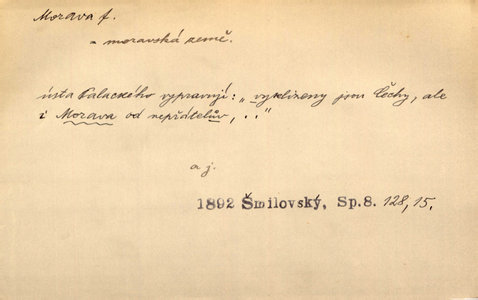 Morava f.
= moravská země.
ústa Palackého vypravují: „vyklizeny jsou Čechy, ale
i Morava od nepřátelův, . . "
a j.
1892 Šmilovský, Sp.8. 128, 15.